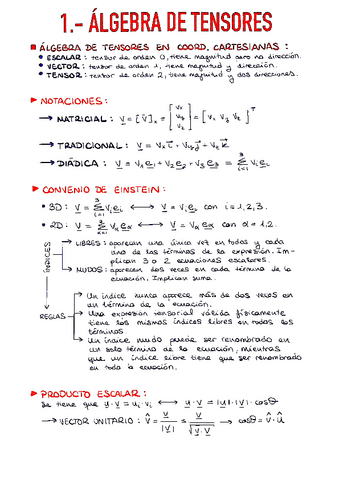 1.- ÁLGEBRA DE TENSORES
■ ÁLGEBRA DE TENSORES EN COORD. CARTESIANAS :
• ESCALAR : tensor de orden 0, tiene magnitud pero no dirección.
• VECTOR : tensor de orden 1, tiene magnitud y dirección.
• TENSOR : tensor de orden 2, tiene magnitud y dos direcciones.
► NOTACIONES :
→ MATRICIAL : V = [V]ₙ = [Vx Vy Vz] = [Vx Vy Vz]ᵀ
→ TRADICIONAL : V = Vx i + Vy j + Vz k
→ DIÁDICA : V = V₁e₁ + V₂e₂ + V₃e₃ = Σ Vᵢeᵢ
► CONVENIO DE EINSTEIN :
• 3D : V = Σ Vᵢeᵢ ⟷ V = Vᵢeᵢ con i = 1, 2, 3.
• 2D : V = Σ Vαeα ⟷ V = Vαeα con α = 1, 2.
ÍNDICES
LIBRES : aparecen una única vez en todos y cada
uno de los términos de la expresión. Im-
plican 3 o 2 ecuaciones escalares.
MUDOS : aparecen dos veces en cada término de la
ecuación. Implican suma.
REGLAS
Un índice nunca aparece más de dos veces en
un término de la ecuación.
Una expresión tensorial válida físicamente
tiene los mismos índices libres en todos los
términos.
Un índice mudo puede ser renombrado en
un solo término de la ecuación, mientras
que un índice libre tiene que ser renombrado
en toda la ecuación.
► PRODUCTO ESCALAR :
Se tiene que u · V = uᵢ · vᵢ ⟷ u · V = |u| · |V| · cosθ
→ VECTOR UNITARIO : V̂ = V / |V| = V / √(V · V) → cosθ = v̂ · û